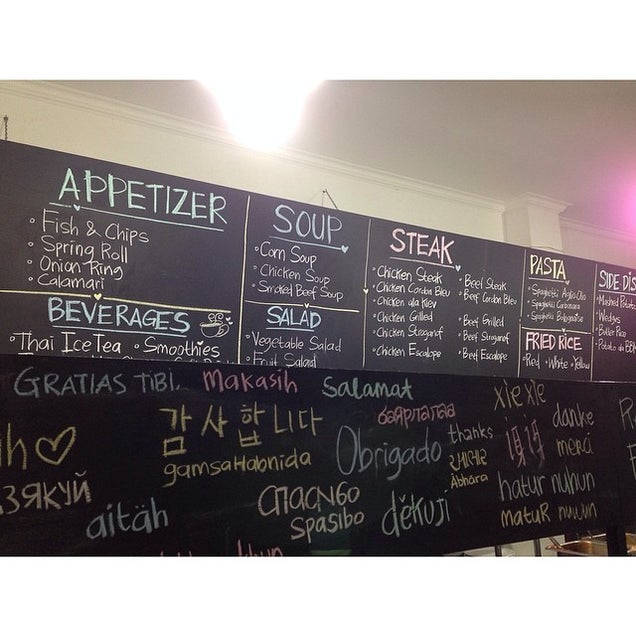 APPETIZER
• Fish & Chips
• Spring Roll
• Onion Ring
• Calamari
BEVERAGES
• Thai Ice Tea • Smoothies
SOUP
• Corn Soup
• Chicken Soup
• Smoked Beef Soup
SALAD
Vegetable Salad
Fruit Salad
STEAK
• Chicken Steak
• Chicken Cordon Bleu
• Chicken ala Kiev
• Chicken Grilled
• Chicken Stroganof
• Chicken Escalope
• Beef Steak
• Beef Cordon Bleu
• Beef Grilled
• Beef Stroganof
• Beef Escalope
PASTA
• Spaghetti Aglio Olio
• Spaghetti Carbonara
• Spaghetti Bolognaise
FRIED RICE
• Red • White • Yellow
SIDE DIS
• Mashed Potato
• Wedges
• Butter Rice
• Potato
GRATIAS TIBI.
Makasih
Salamat
xie xie
감사합니다
gamsaHabnida
Obrigado
thanks
Abhara
danke
merci
hatur nuhun
matur nuwun
aitäh
спасибо
spasibo
děkuji